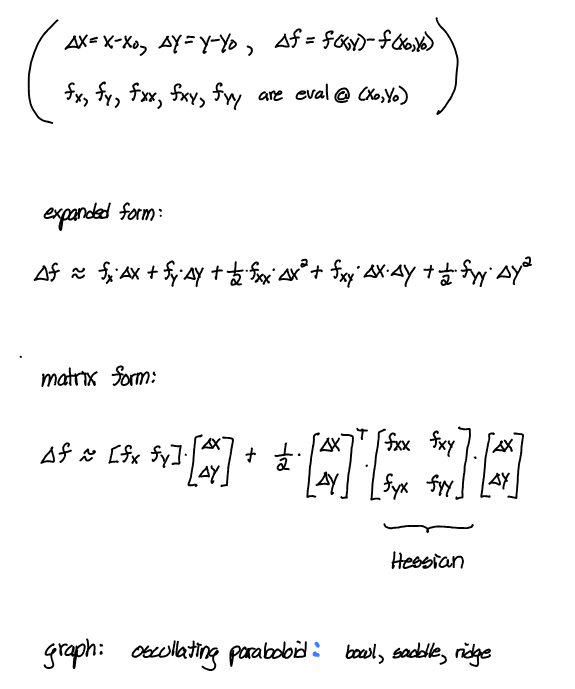 Δx = x-x₀, Δy = y-y₀, Δf = f(x,y)-f(x₀,y₀)
fx, fy, fxx, fxy, fyy are eval @ (x₀,y₀)
expanded form:
Δf ≈ fx·Δx + fy·Δy + 1/2·fxx·Δx² + fxy·Δx·Δy + 1/2·fyy·Δy²
matrix form:
Δf ≈ [fx fy]·[Δx Δy] + 1/2·[Δx Δy]ᵀ·[fxx fxy fyx fyy]·[Δx Δy]
Hessian
graph: oscullating paraboloid: bowl, saddle, ridge